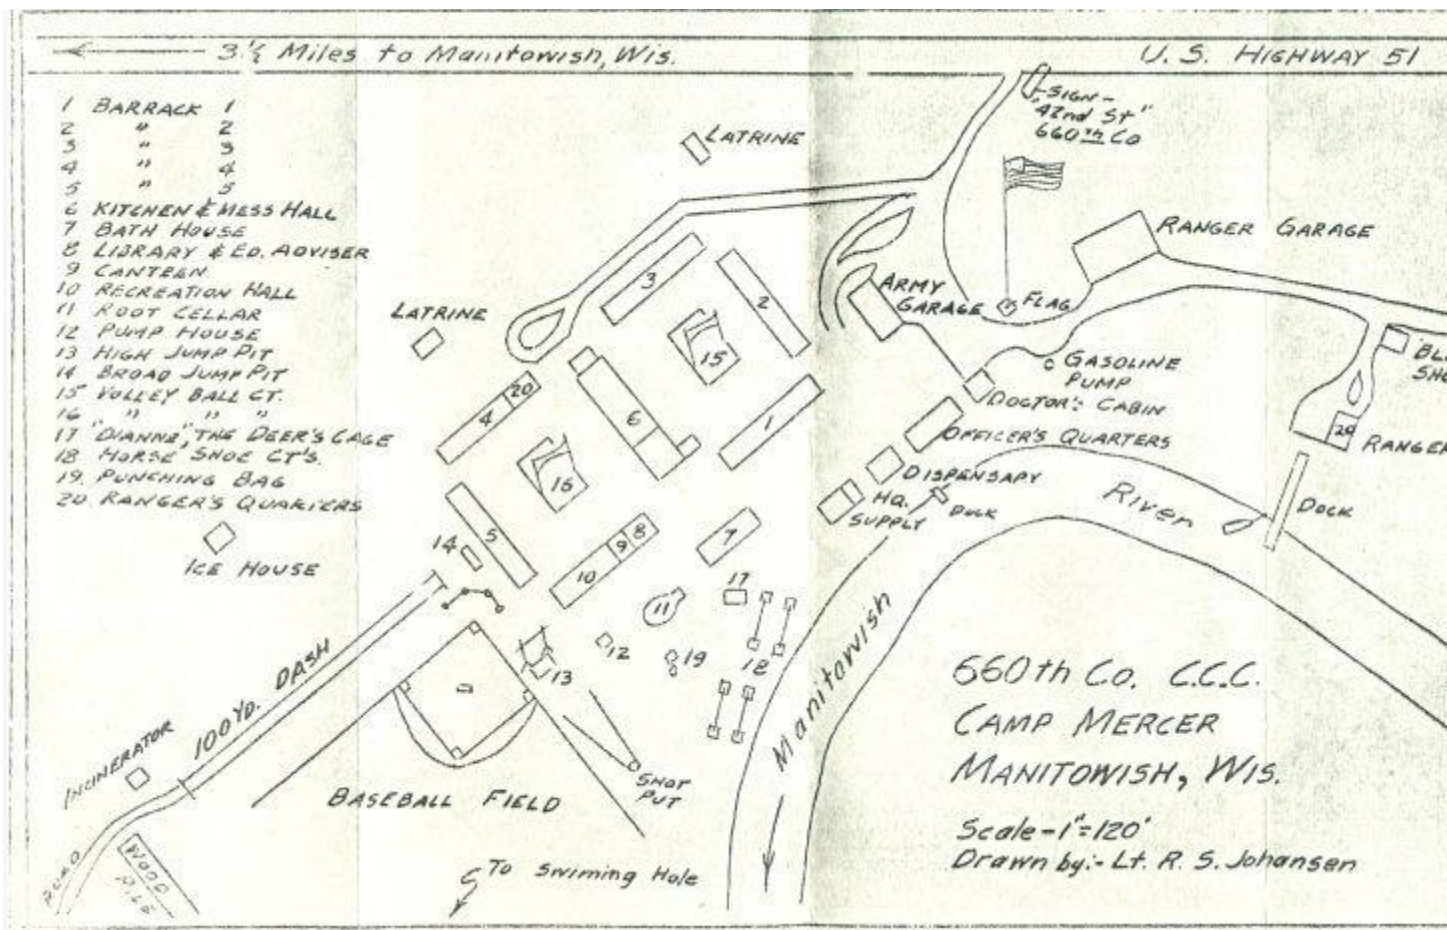 3½ Miles to Manitowish, Wis.
U. S. HIGHWAY 51
1 BARRACK 1
2 " 2
3 " 3
4 " 4
5 " 5
6 KITCHEN & MESS HALL
7 BATH HOUSE
8 LIBRARY & ED. ADVISER
9 CANTEEN
10 RECREATION HALL
11 ROOT CELLAR
12 PUMP HOUSE
13 HIGH JUMP PIT
14 BROAD JUMP PIT
15 VOLLEY BALL CT.
16 " " "
17 "DIANNE", THE DEER'S CAGE
18 HORSE SHOE CT'S.
19. PUNCHING BAG
20. RANGER'S QUARTERS
-SIGN-
"42nd St"
660th Co
LATRINE
RANGER GARAGE
ARMY
GARAGE
FLAG
LATRINE
3
2
15
GASOLINE
PUMP
DOCTOR'S CABIN
20
4
6
1
OFFICER'S QUARTERS
20
RANGER
DISPENSARY
16
HQ.
SUPPLY
DOCK
River
DOCK
ICE HOUSE
14
5
10
9
8
7
11
17
12
19
18
13
Manitowish
100 YD. DASH
INCINERATOR
SHOT
PUT
BASEBALL FIELD
ROAD
WOOD
PILE
To Swiming Hole
660th Co. C.C.C.
CAMP MERCER
MANITOWISH, WIS.
Scale-1"=120'
Drawn by:- Lt. R. S. Johansen